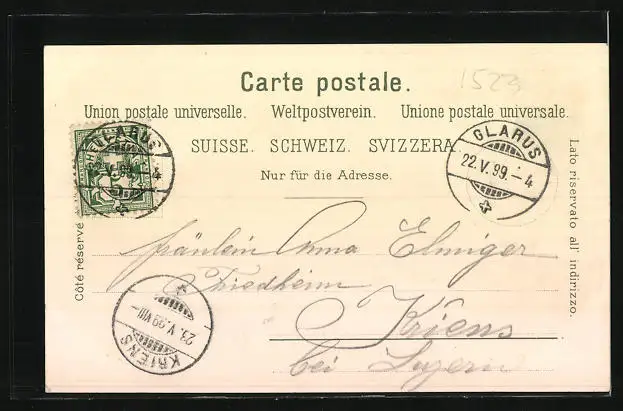 1523
Carte postale.
Union postale universelle. Weltpostverein. Unione postale universale.
SUISSE. SCHWEIZ. SVIZZERA.
Nur für die Adresse.
Côté réservé
Lato riservato all' indirizzo.
GLARUS
22.V.99.-4
GLARUS
V.99.-4
Fräulein Anna Elmiger
Friedheim
Kriens
bei Luzern
KRIENS
23.V.99.VIII-